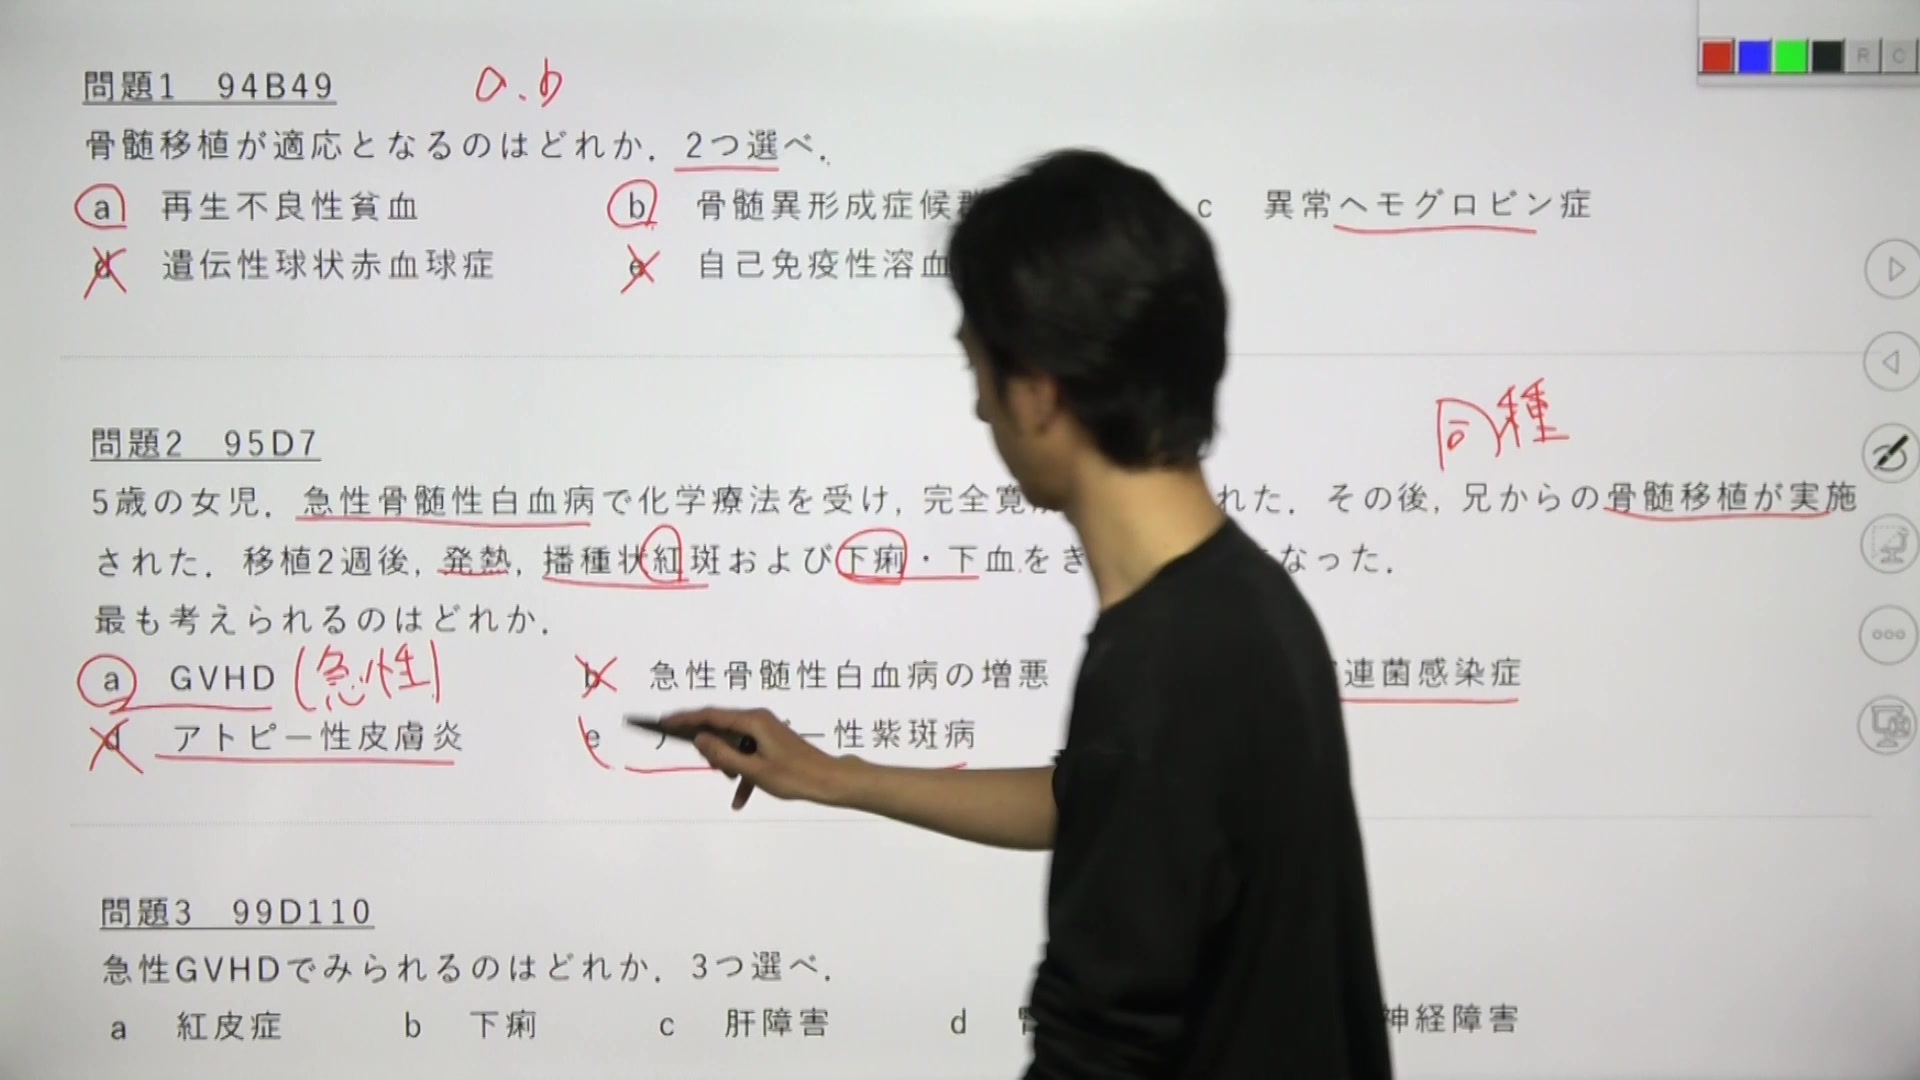 問題1 94B49 a.b
骨髄移植が適応となるのはどれか．2つ選べ．
a 再生不良性貧血 b 骨髄異形成症候群 c 異常ヘモグロビン症
d 遺伝性球状赤血球症 e 自己免疫性溶血
同種
問題2 95D7
5歳の女児．急性骨髄性白血病で化学療法を受け, 完全寛 れた．その後, 兄からの骨髄移植が実施
された．移植2週後, 発熱, 播種状紅斑および下痢・下血をき なった．
最も考えられるのはどれか．
a GVHD (急性) b 急性骨髄性白血病の増悪 連菌感染症
d アトピー性皮膚炎 e ー性紫斑病
問題3 99D110
急性GVHDでみられるのはどれか．3つ選べ．
a 紅皮症 b 下痢 c 肝障害 d 神経障害
R C